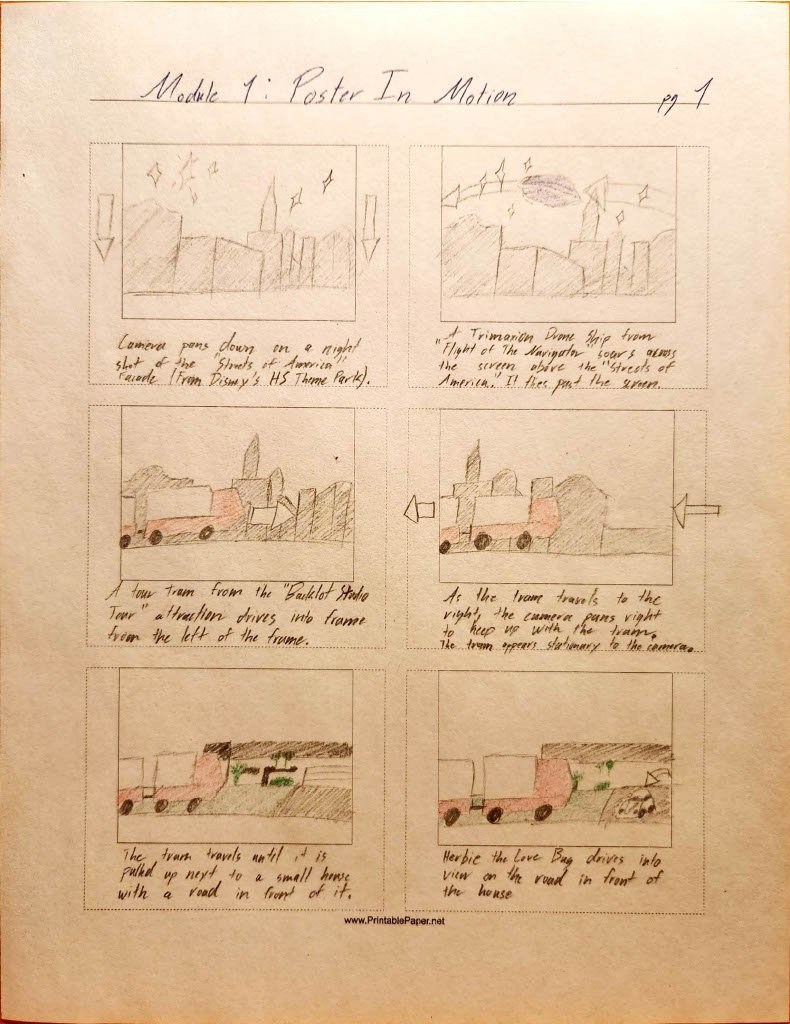 Module 1: Poster In Motion
pg 1
Camera pans down on a night
shot of the "Streets of America"
Facade (From Disney's HS Theme Park).
A Trimaxion Drone Ship from
"Flight of The Navigator soars across
the screen above the "Streets of
America." It flies past the screen.
A tour tram from the "Backlot Studio
Tour" attraction drives into frame
from the left of the frame.
As the tram travels to the
right, the camera pans right
to keep up with the tram.
The tram appears stationary to the camera.
The tram travels until it is
pulled up next to a small house
with a road in front of it.
Herbie the Love Bug drives into
view on the road in front of
the house
www.PrintablePaper.net